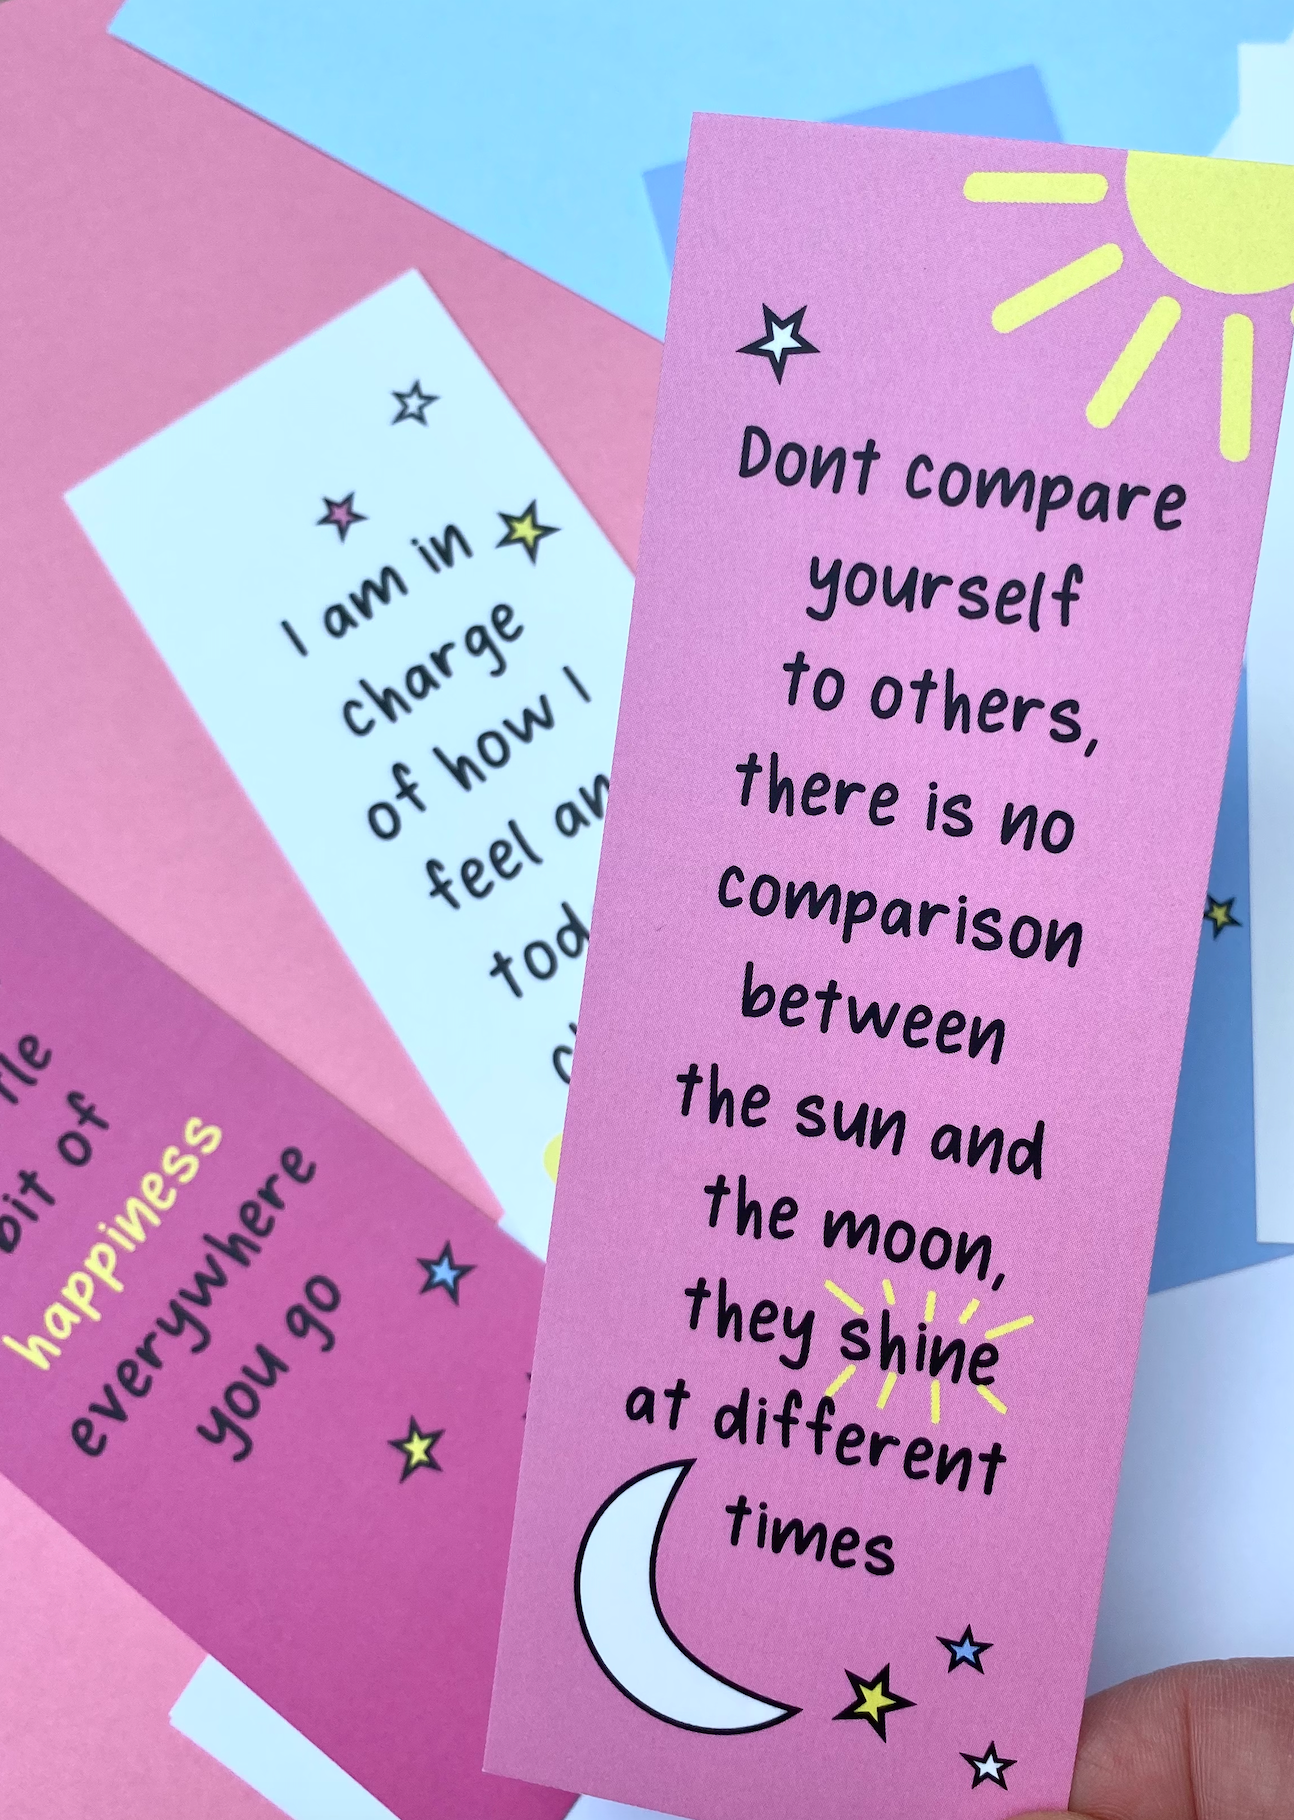 Dont compare
yourself
to others,
there is no
comparison
between
the sun and
the moon,
they shine
at different
times
I am in
charge
of how I
feel
bit of
happiness
everywhere
you go